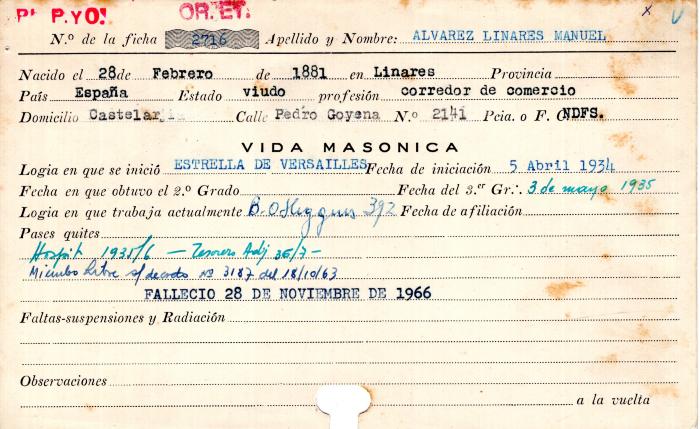 P. P.YO. OR.ET.
N.º de la ficha 2716 Apellido y Nombre: ALVAREZ LINARES MANUEL
Nacido el 28 de Febrero de 1881 en Linares Provincia
País España Estado viudo profesión corredor de comercio
Domicilio Castelar Calle Pedro Goyena N.º 2141 Pcia. o F. C. NDFS.
VIDA MASONICA
Logia en que se inició ESTRELLA DE VERSAILLES Fecha de iniciación 5 Abril 1934
Fecha en que obtuvo el 2.º Grado Fecha del 3.er Gr∴ 3 de mayo 1935
Logia en que trabaja actualmente B. O'Higgins 392 Fecha de afiliación
Pases quites
Hospit 1935/6 — Tesorero Adj 36/7 –
Miembro Libre s/decreto nº 3187 del 18/10/63
FALLECIO 28 DE NOVIEMBRE DE 1966
Faltas-suspensiones y Radiación
Observaciones
a la vuelta